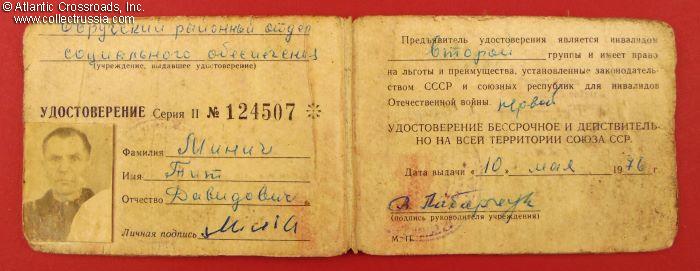 © Atlantic Crossroads, Inc.
www.collectrussia.com
Овручский районный отдел
социального обеспечения
(учреждение, выдавшее удостоверение)
УДОСТОВЕРЕНИЕ Серия II № 124507 ✳
Фамилия Минич
Имя Тит
Отчество Давидович
Личная подпись
Предъявитель удостоверения является инвалидом
второй группы и имеет право
на льготы и преимущества, установленные законодатель-
ством СССР и союзных республик для инвалидов
Отечественной войны. первой
УДОСТОВЕРЕНИЕ БЕССРОЧНОЕ И ДЕЙСТВИТЕЛЬ-
НО НА ВСЕЙ ТЕРРИТОРИИ СОЮЗА ССР.
Дата выдачи «10» мая 1976 г.
(подпись руководителя учреждения)